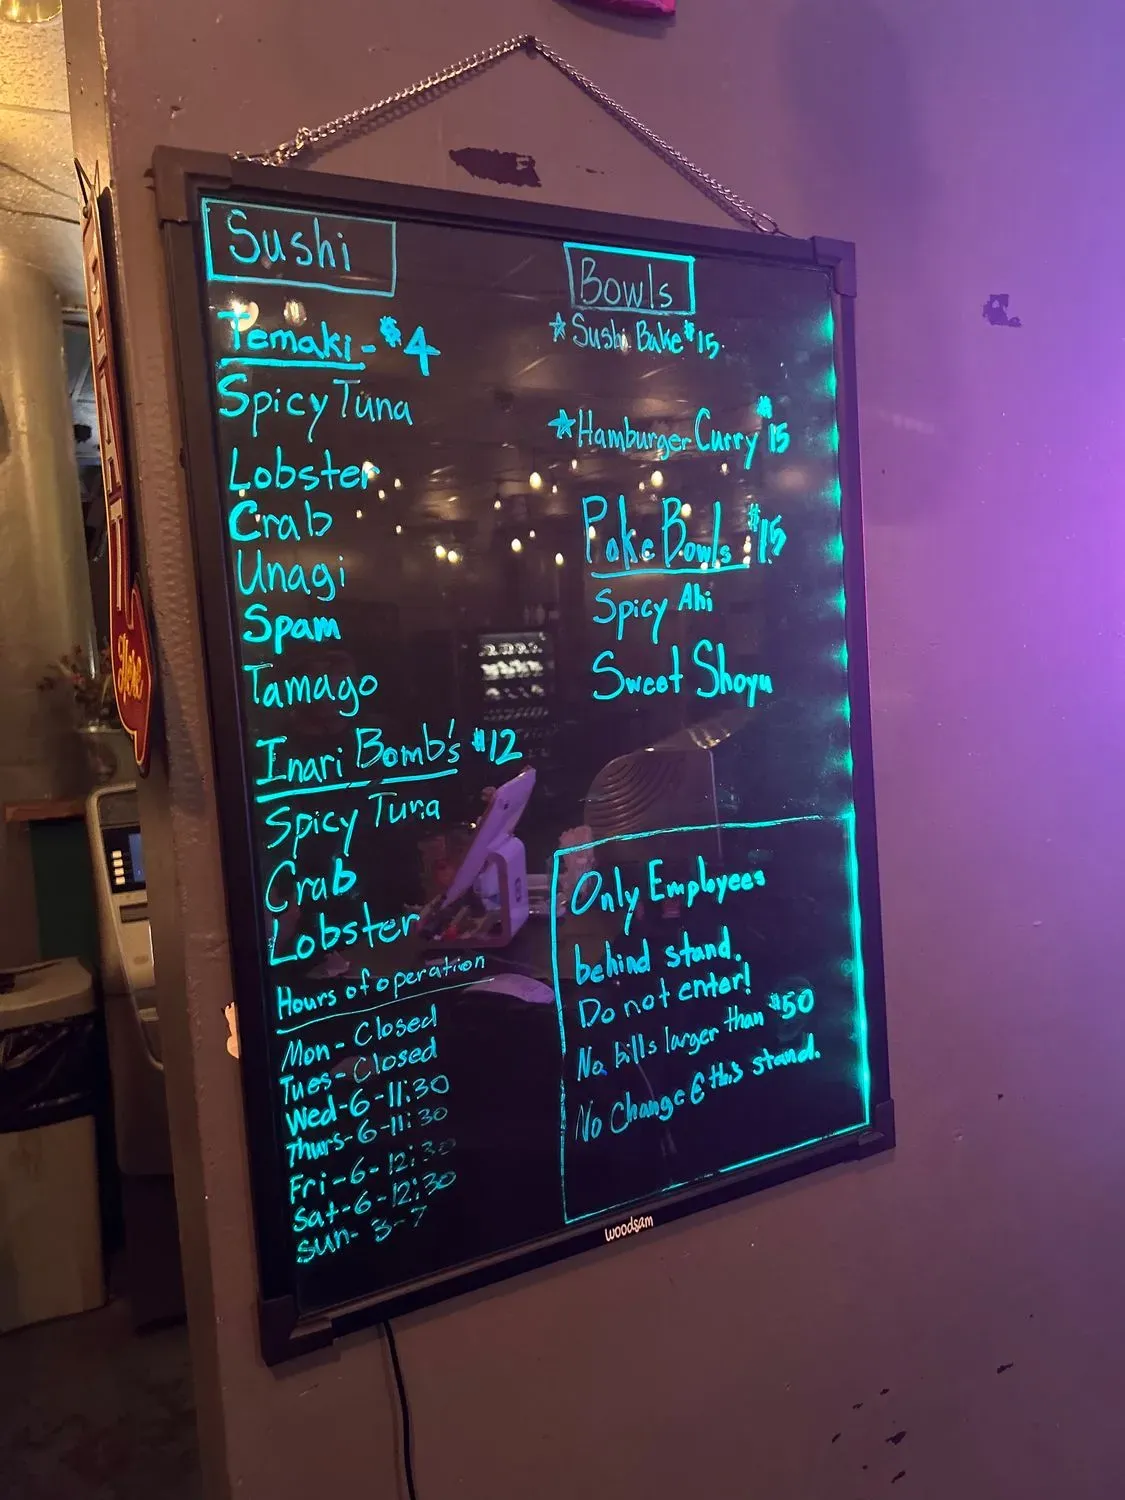 Sushi
Temaki - $4
Spicy Tuna
Lobster
Crab
Unagi
Spam
Tamago
Inari Bomb's $12
Spicy Tuna
Crab
Lobster
Hours of operation
Mon - Closed
Tues - Closed
Wed - 6 - 11:30
Thurs - 6 - 11:30
Fri - 6 - 12:30
Sat - 6 - 12:30
Sun - 3 - 7
Bowls
☆ Sushi Bake $15
☆ Hamburger Curry $15
Poke Bowls $15
Spicy Ahi
Sweet Shoyu
Only Employees
behind stand.
Do not enter!
No bills larger than $50
No Change @ this stand.
woodsam
Here